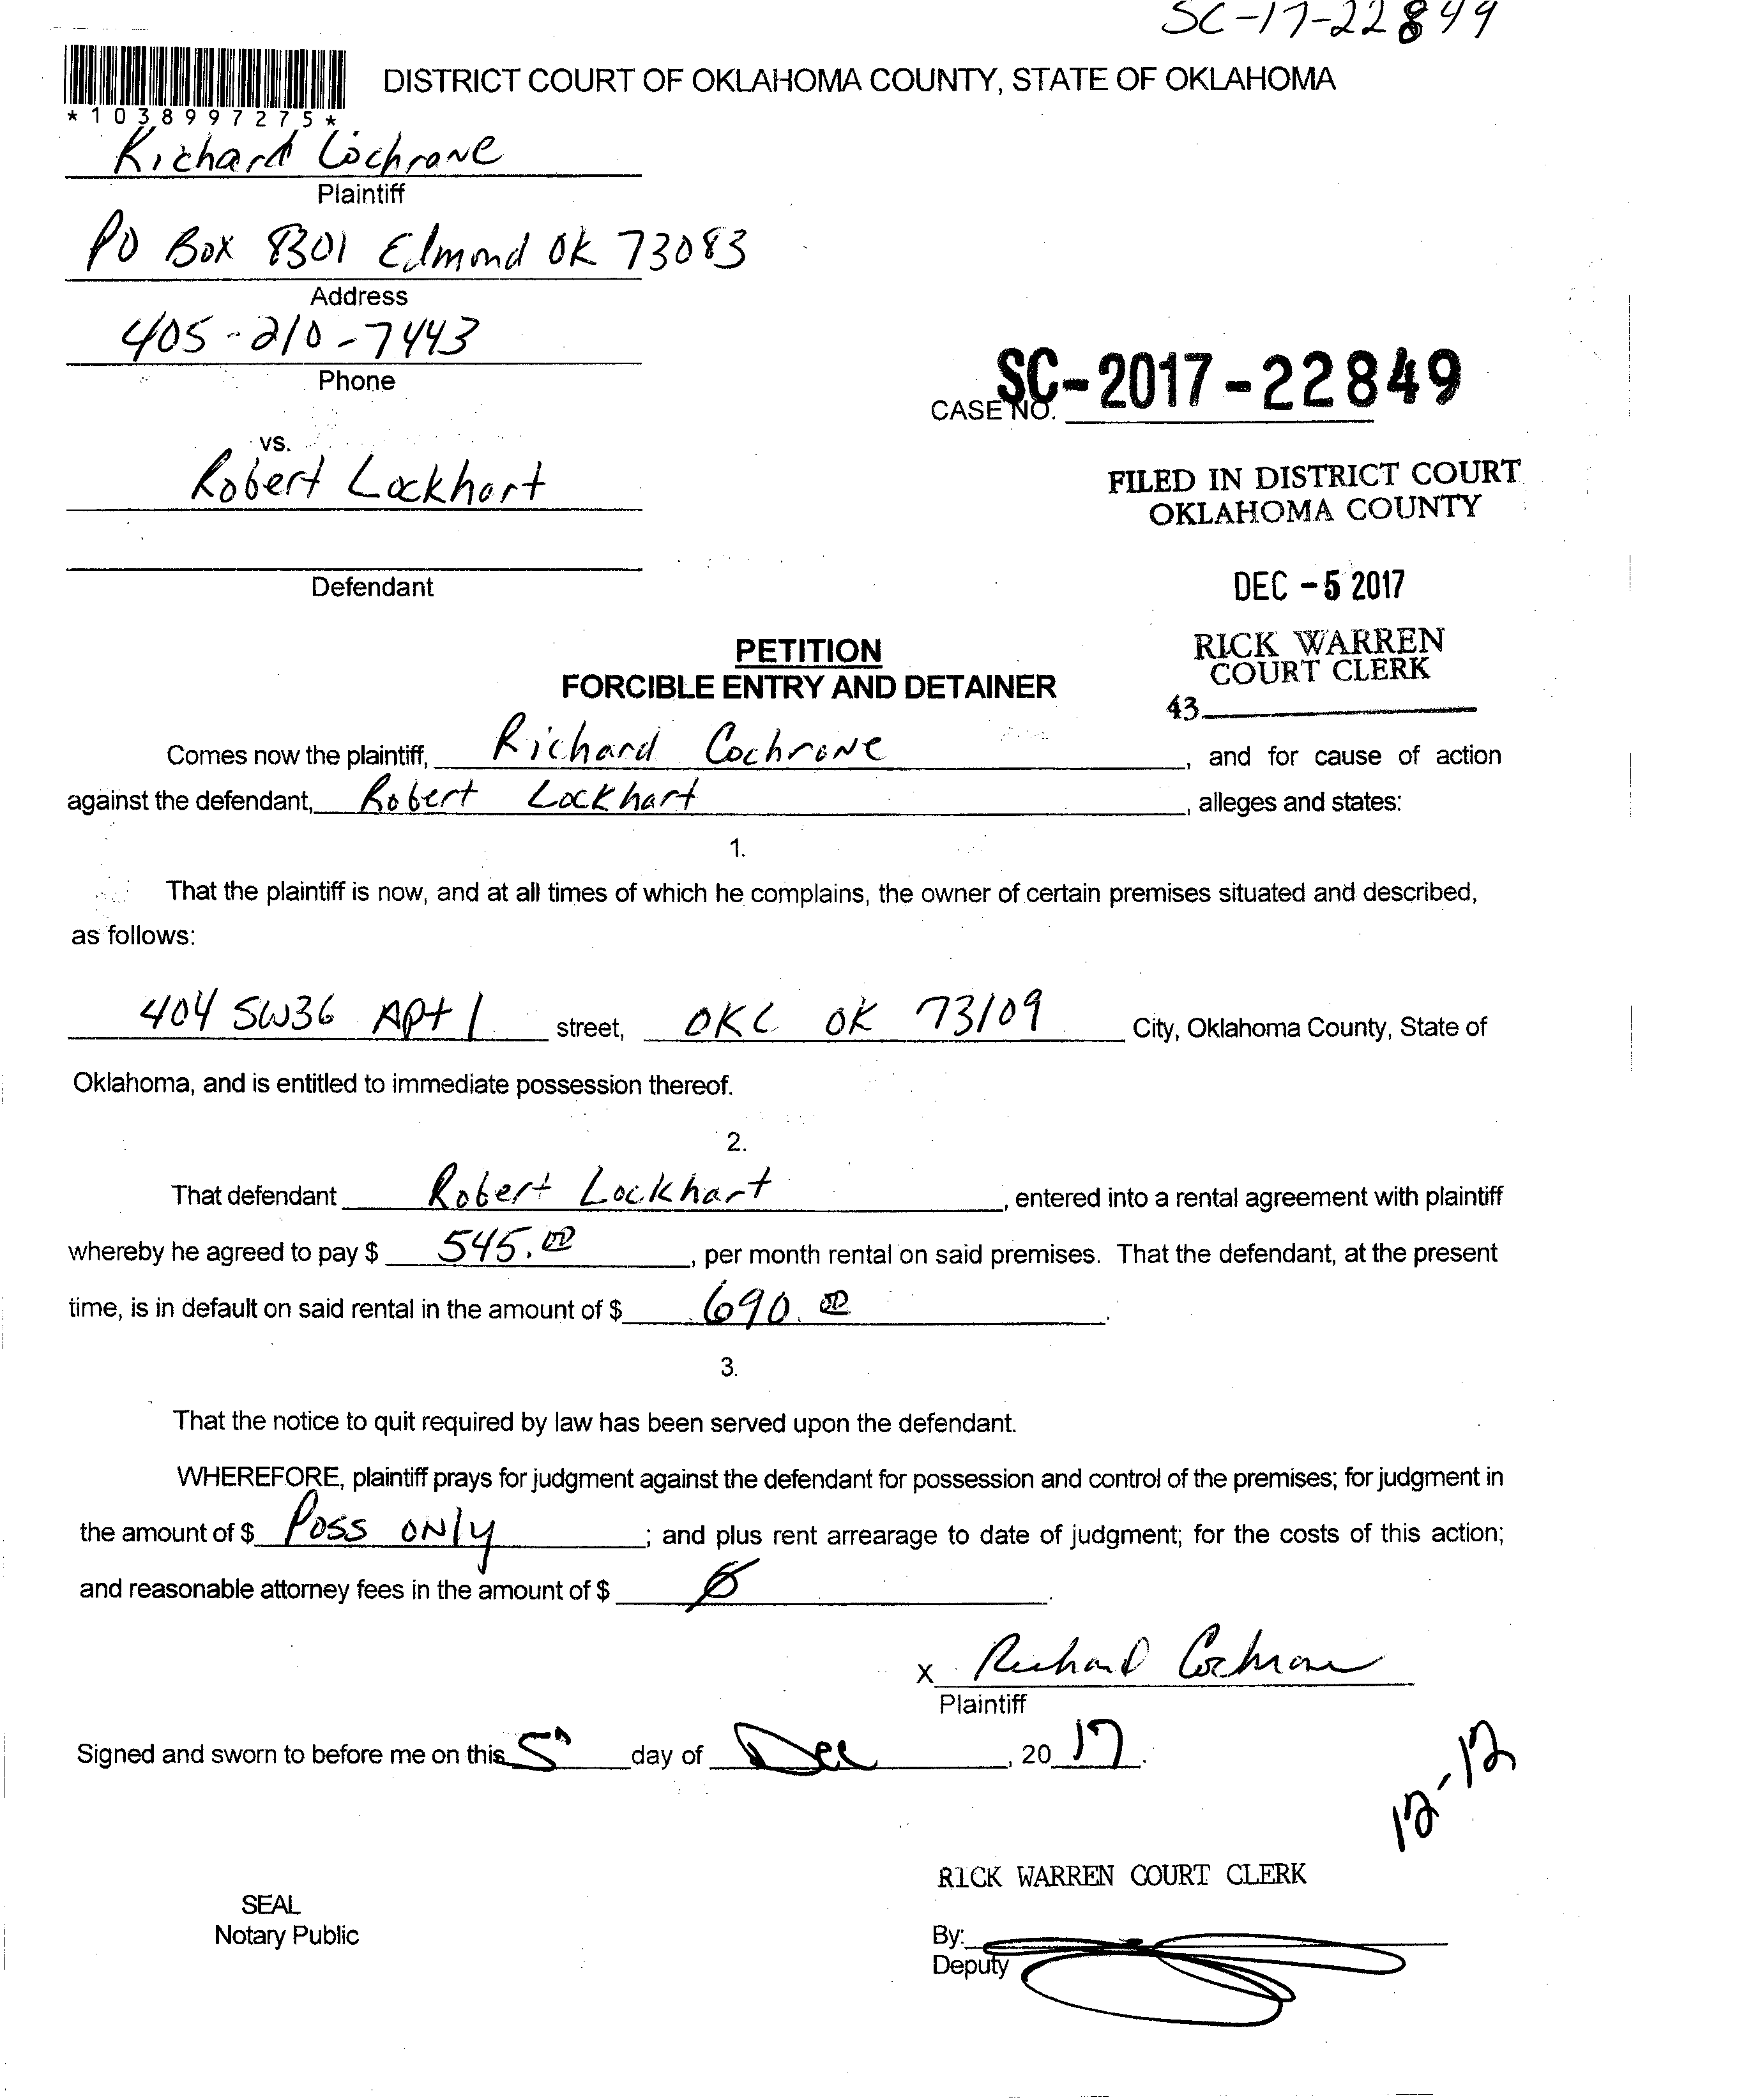 SC-17-22849
DISTRICT COURT OF OKLAHOMA COUNTY, STATE OF OKLAHOMA
*1038997275*
Richard Cochrane
Plaintiff
PO Box 8301 Edmond OK 73083
Address
405-210-7443
Phone
CASE NO. SC-2017-22849
vs.
Robert Lockhart
FILED IN DISTRICT COURT
OKLAHOMA COUNTY
Defendant
DEC -5 2017
PETITION
FORCIBLE ENTRY AND DETAINER
RICK WARREN
COURT CLERK
43
Comes now the plaintiff, Richard Cochrane, and for cause of action
against the defendant, Robert Lockhart, alleges and states:
1.
That the plaintiff is now, and at all times of which he complains, the owner of certain premises situated and described,
as follows:
404 SW36 Apt 1 street, OKC OK 73109 City, Oklahoma County, State of
Oklahoma, and is entitled to immediate possession thereof.
2.
That defendant Robert Lockhart, entered into a rental agreement with plaintiff
whereby he agreed to pay $ 545.00, per month rental on said premises. That the defendant, at the present
time, is in default on said rental in the amount of $ 690.00.
3.
That the notice to quit required by law has been served upon the defendant.
WHEREFORE, plaintiff prays for judgment against the defendant for possession and control of the premises; for judgment in
the amount of $ Poss ONly; and plus rent arrearage to date of judgment; for the costs of this action;
and reasonable attorney fees in the amount of $ Ø.
X Richard Cochrane
Plaintiff
Signed and sworn to before me on this 5th day of Dec, 2017.
12-12
RICK WARREN COURT CLERK
SEAL
Notary Public
By:
Deputy